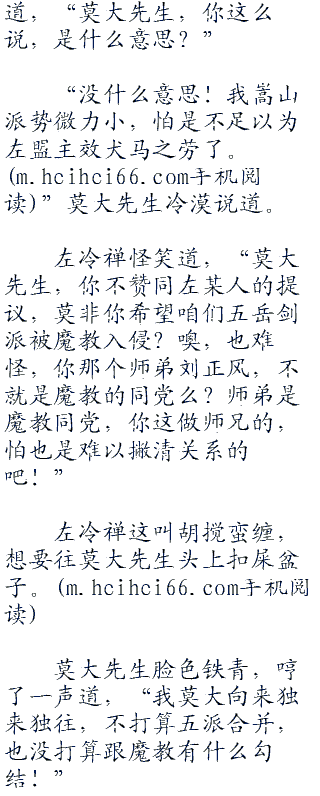 道，“莫大先生，你这么
说，是什么意思？”
“没什么意思！我嵩山
派势微力小，怕是不足以为
左盟主效犬马之劳了。
(m.hcihci66.com手机阅
读)”莫大先生冷漠说道。
左冷禅怪笑道，“莫大
先生，你不赞同左某人的提
议，莫非你希望咱们五岳剑
派被魔教入侵？噢，也难
怪，你那个师弟刘正风，不
就是魔教的同党么？师弟是
魔教同党，你这做师兄的，
怕也是难以撇清关系的
吧！”
左冷禅这叫胡搅蛮缠，
想要往莫大先生头上扣屎盆
子。(m.hcihci66.com手机阅
读)
莫大先生脸色铁青，哼
了一声道，“我莫大向来独
来独往，不打算五派合并，
也没打算跟魔教有什么勾
结！”